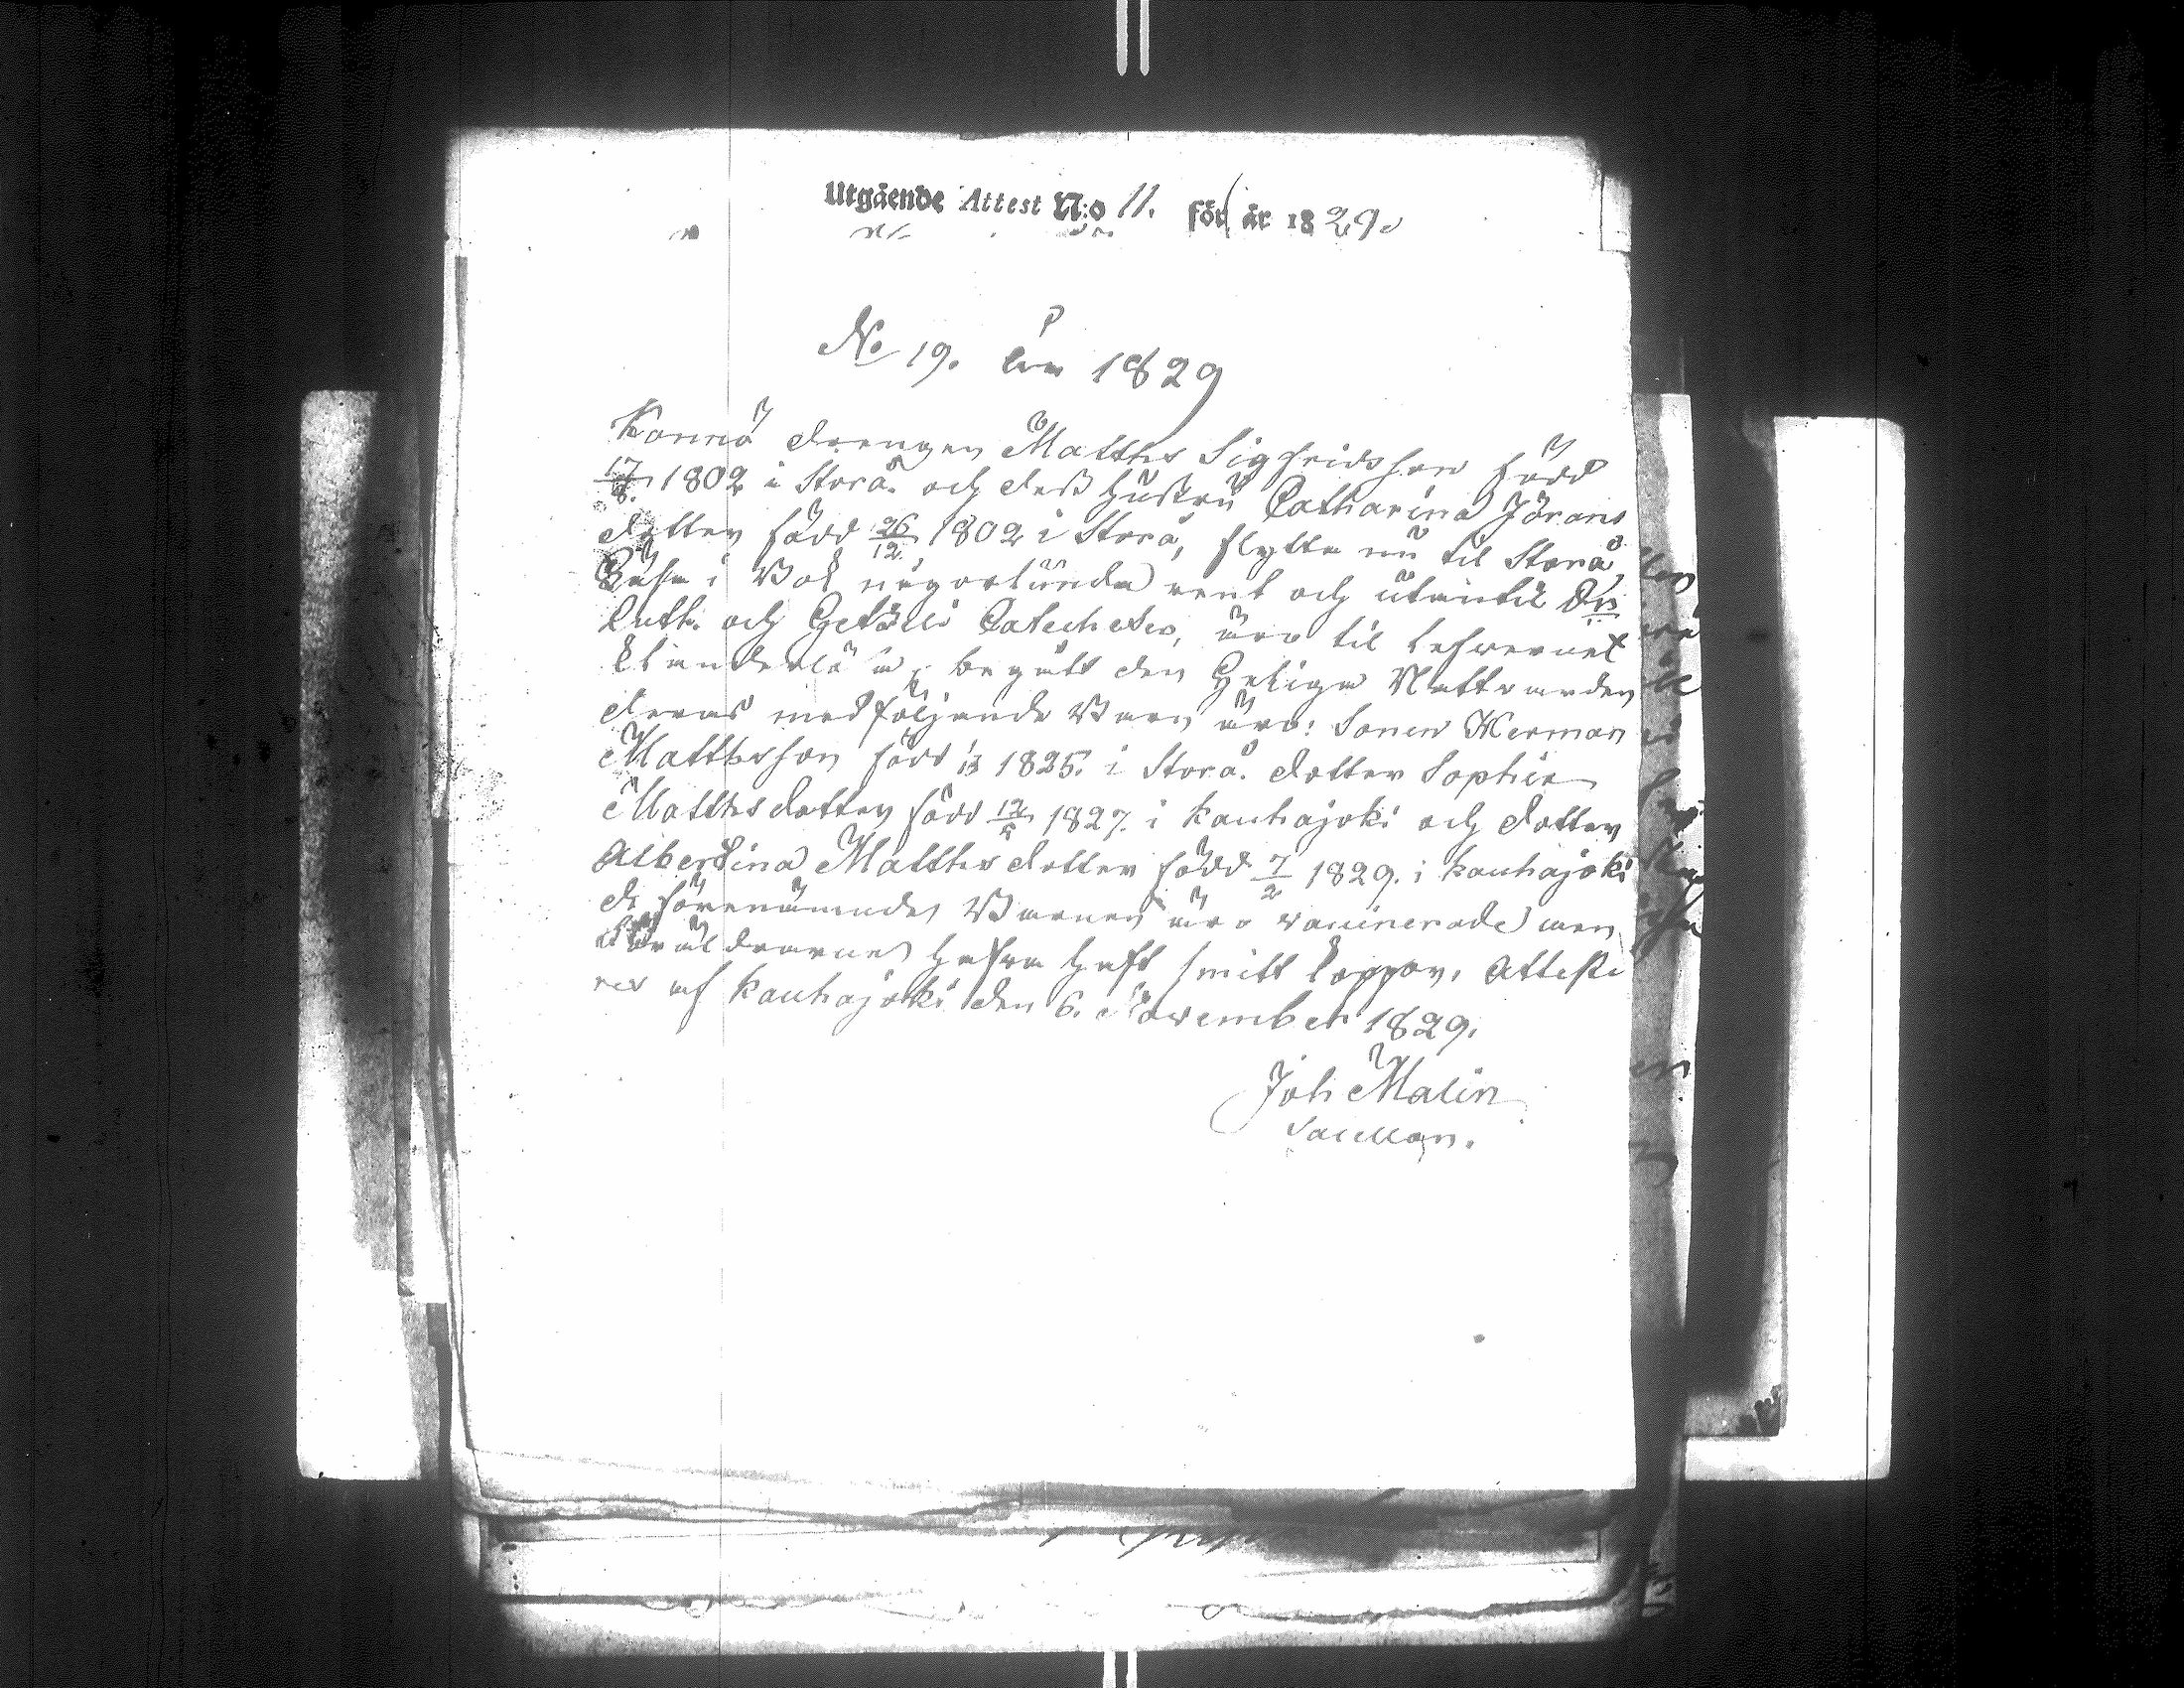 Utgående Attest N:o 11. för år 1829.
No 19. år 1829
Konnö drengen Matths Sigfridsson född
17/8. 1802 i Storå. och dess Hustru Catharina Jörans
dotter född 26/12. 1802 i Storå, flytta nu til Storå,
Läsa i Bok någorlunda rent och utantil Dr
Luth. och Getzelii Cateches, äro til lefwernet
begått den Heliga Nattvarden
deras medföljande Barn äro: Sonen Herman
Mattsson född 1825. i Storå. dotter Sophia
Matthsdotter född 12/5 1827. i Kauhajoki och dotter
Albertina Matths dotter född 7/2 1829. i Kauhajoki
de förenämnde Barnen äro vaccinerade men
Föräldrarne hafva haft smitt koppor. Atteste
res af Kauhajoki den 6. November 1829.
Joh Malin
Sacellan.